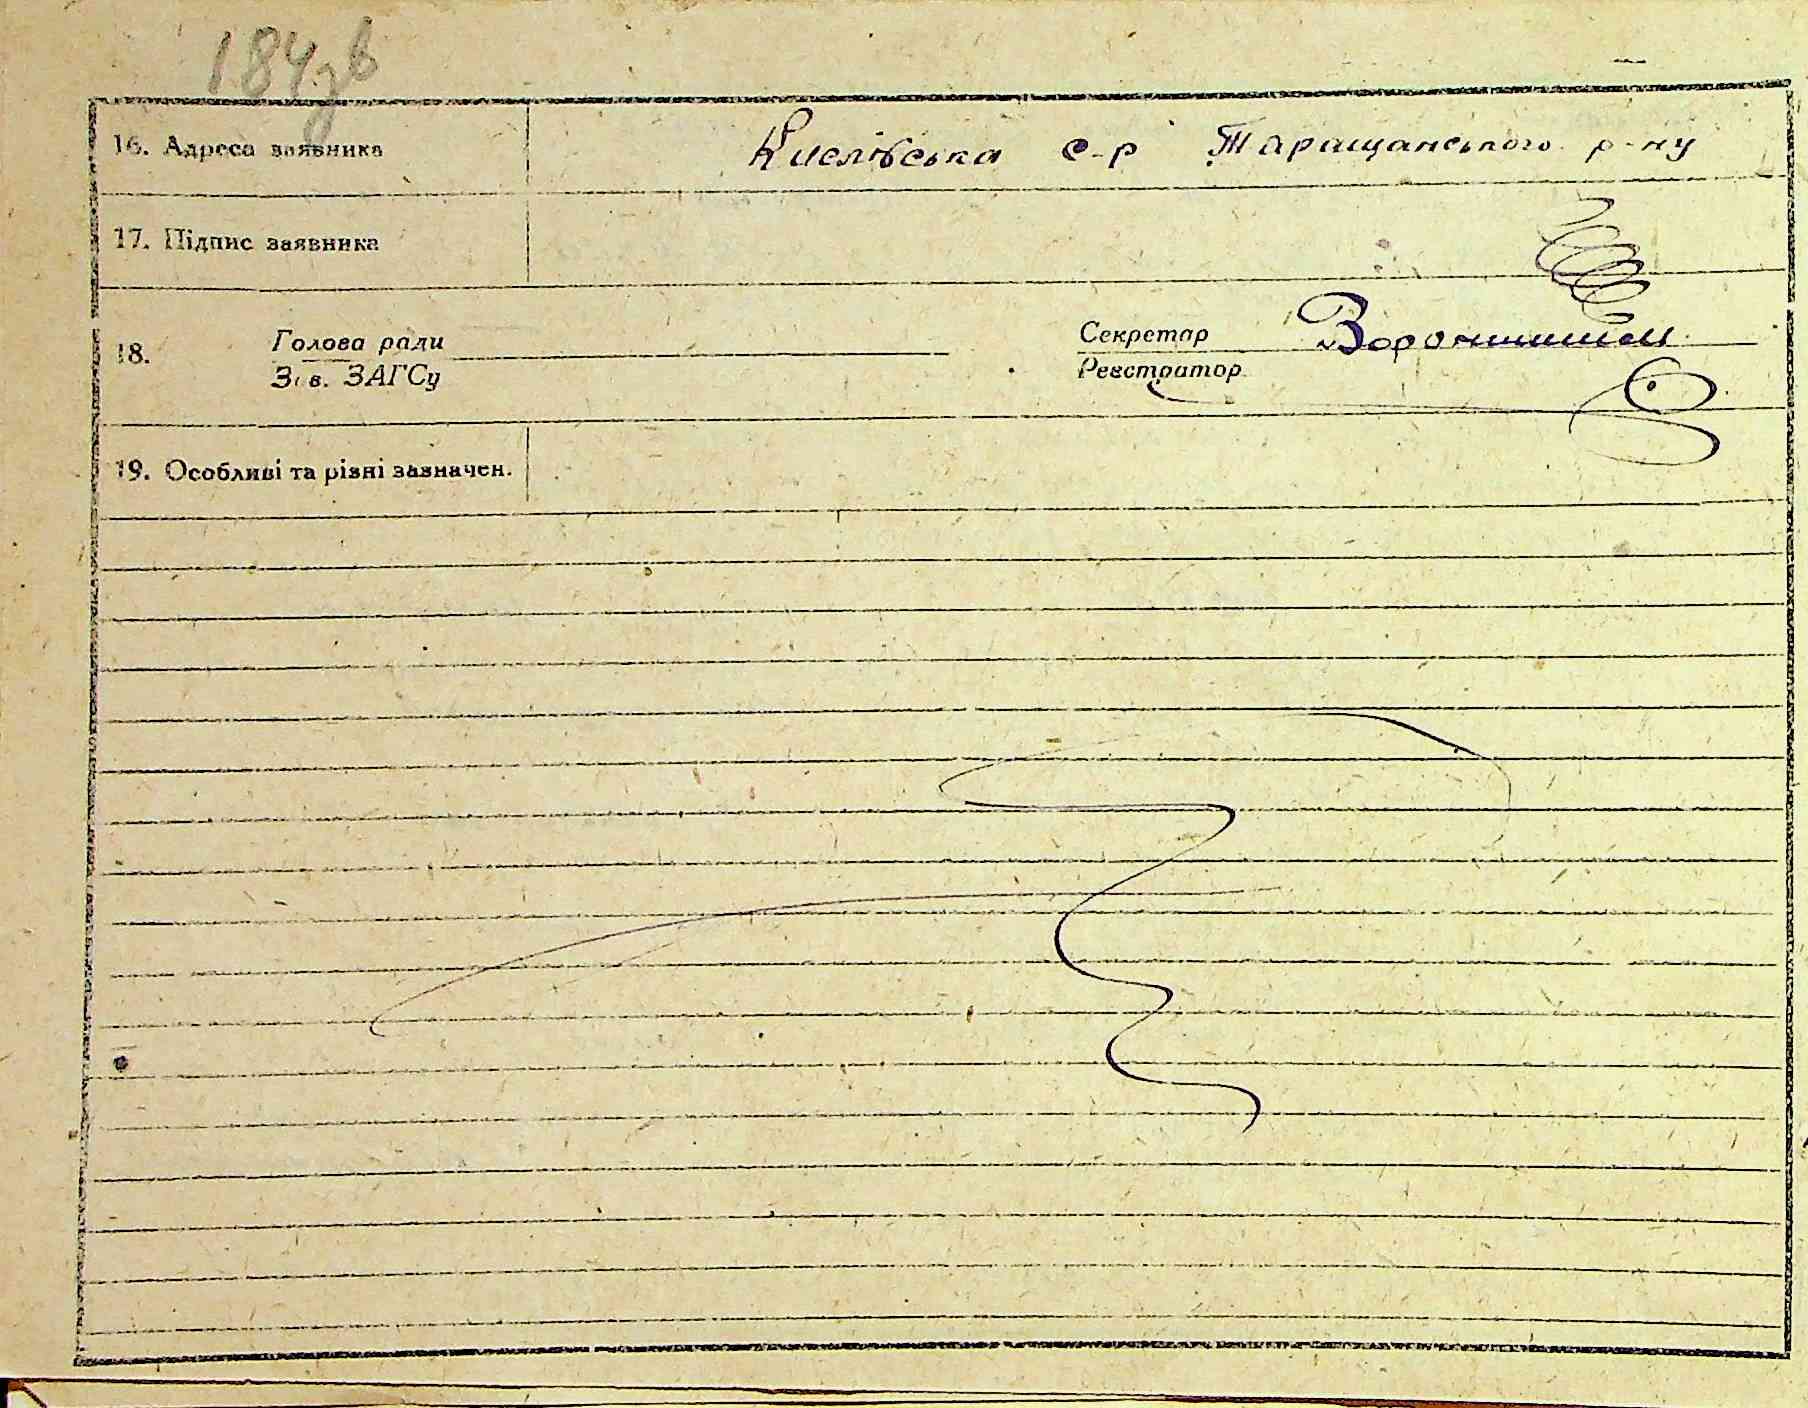 184зв
16. Адреса заявника Кислівська с-р Таращанського р-ну
17. Підпис заявника
18. Голова ради Секретар
Зав. ЗАГСу Реєстратор
19. Особливі та різні зазначен.